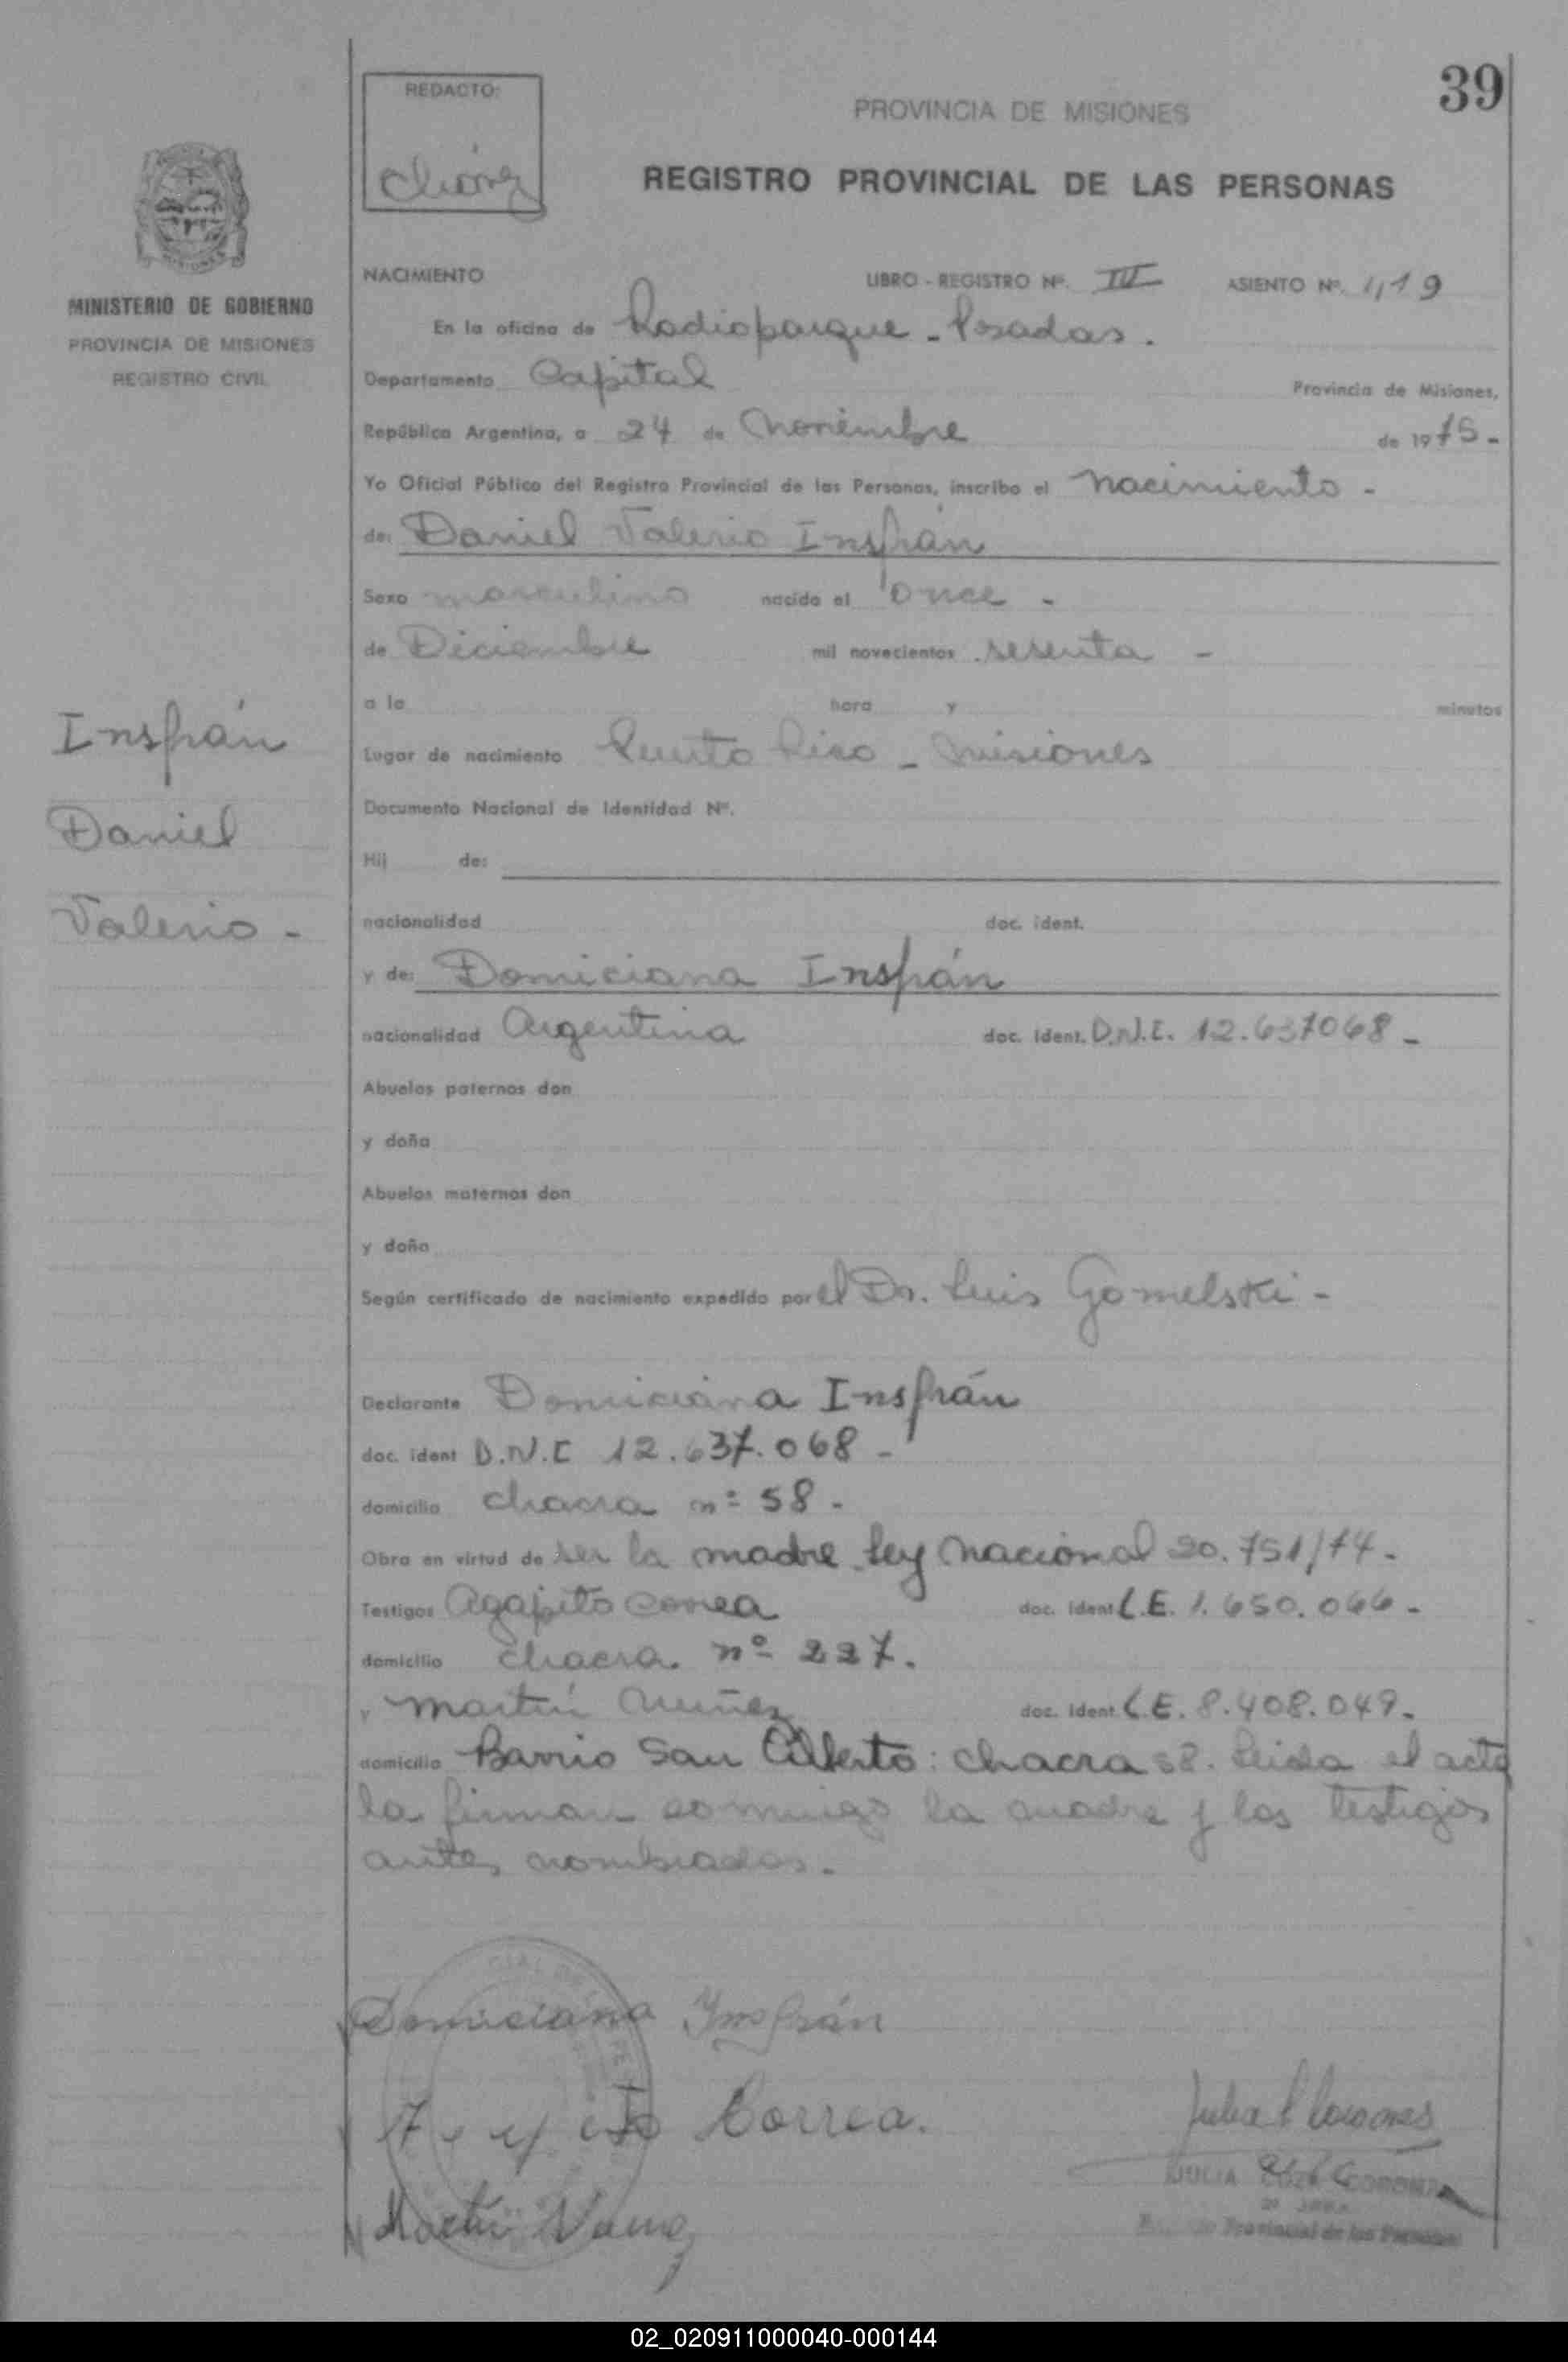 39
REDACTO:
PROVINCIA DE MISIONES
REGISTRO PROVINCIAL DE LAS PERSONAS
MINISTERIO DE GOBIERNO
PROVINCIA DE MISIONES
REGISTRO CIVIL
NACIMIENTO LIBRO - REGISTRO Nº. III ASIENTO Nº. 419
En la oficina de Radioparque - Posadas.
Departamento Capital Provincia de Misiones,
República Argentina, a 24 de Noviembre de 1975-
Yo Oficial Público del Registro Provincial de las Personas, inscribo el nacimiento -
de: Daniel Valerio Insfrán
Sexo masculino nacido el once -
de Diciembre mil novecientos sesenta -
a la hora y minutos
Insfrán
Daniel
Valerio -
Lugar de nacimiento Puerto Rico - Misiones
Documento Nacional de Identidad Nº.
Hij de:
nacionalidad doc. ident.
y de: Domiciana Insfrán
nacionalidad Argentina doc. ident. D.N.I. 12.637068 -
Abuelos paternos don
y doña
Abuelos maternos don
y doña
Según certificado de nacimiento expedido por el Dr. Luis Gomelski -
Declarante Domiciana Insfrán
doc. ident D.N.I 12.637.068 -
domicilio chacra nº 58 -
Obra en virtud de ser la madre Ley Nacional 20.751/74 -
Testigos Agapito Correa doc. ident L.E. 1.650.066 -
domicilio chacra nº 227.
y Martín Nuñez doc. ident L.E. 8.408.049 -
domicilio Barrio San Alberto: chacra 58. Leida el acta
la firman conmigo la madre y los testigos
antes nombrados.
Domiciana Insfrán
Correa.
Martin Nuñez
JULIA
Provincial de las Personas
02_020911000040-000144